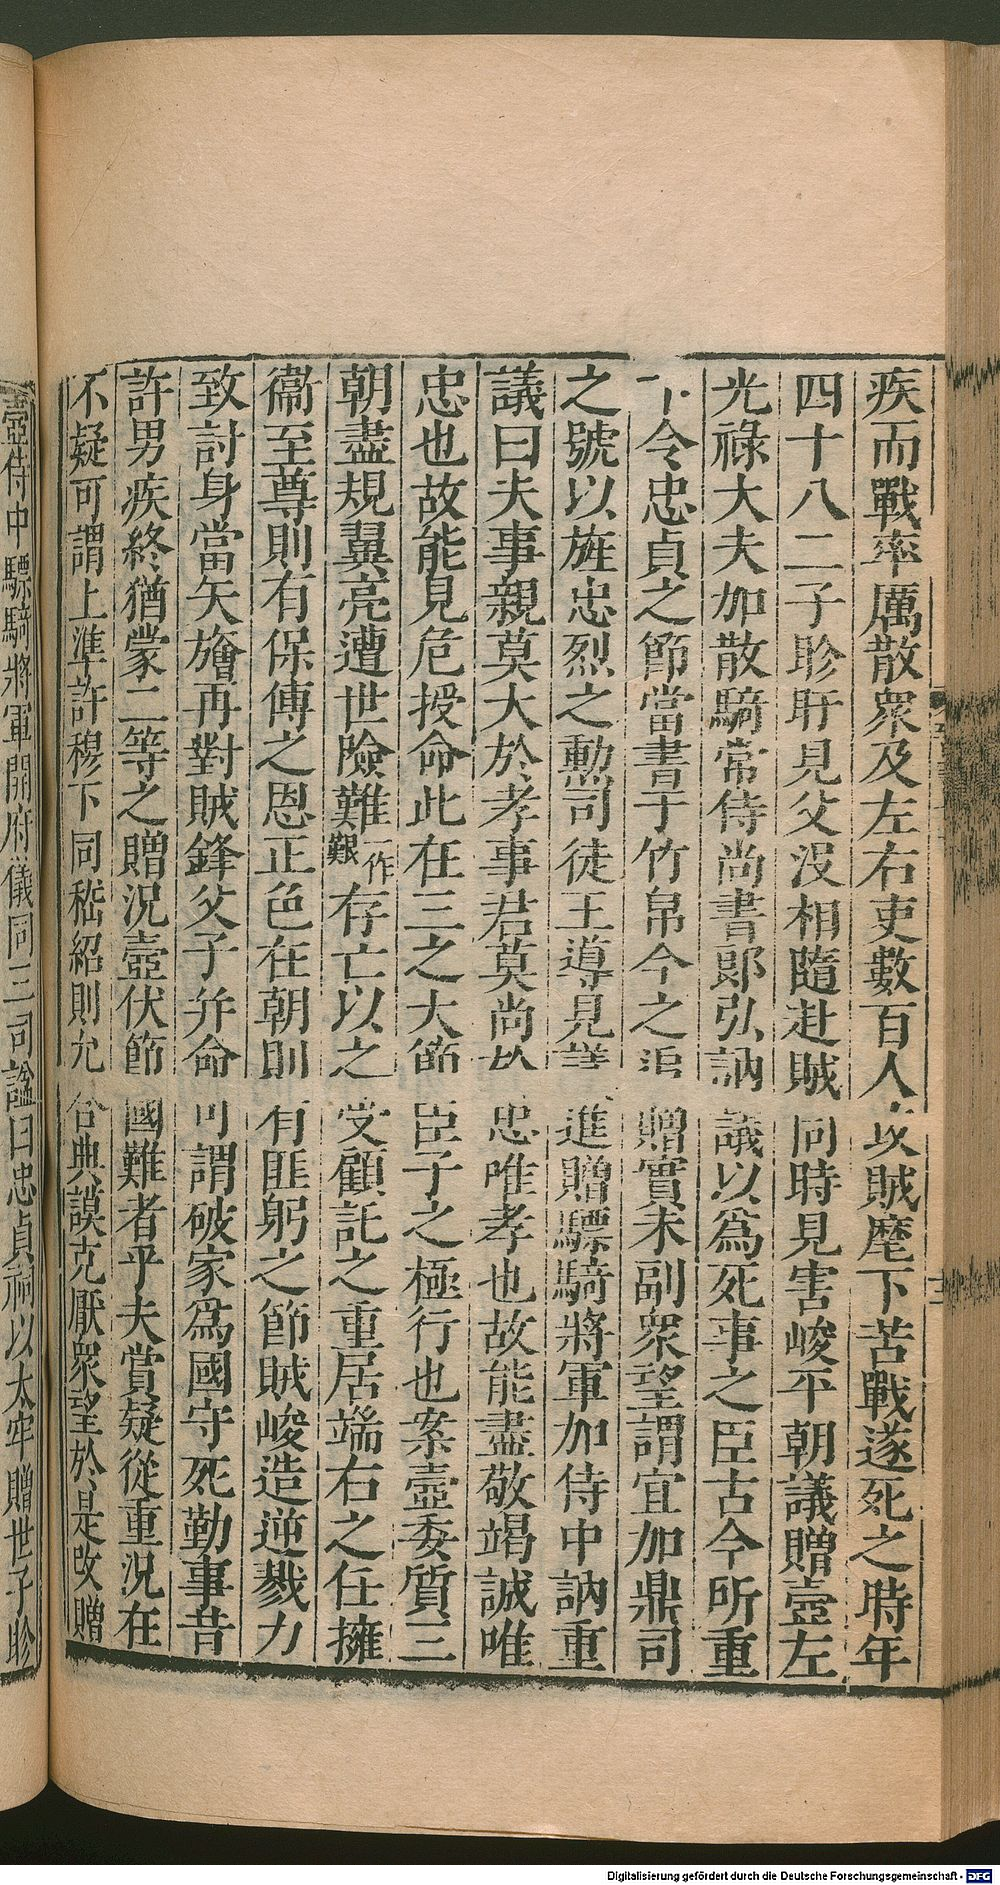 疾而戰率厲散衆及左右吏數百人攻賊麾下苦戰遂死之時年
四十八二子眕盱見父没相隨赴賊同時見害峻平朝議贈壼左
光祿大夫加散騎常侍尚書郞弘訥議以爲死事之臣古今所重
卞令忠貞之節當書于竹帛今之追贈實未副衆望謂宜加鼎司
之號以旌忠烈之勳司徒王導見議進贈驃騎將軍加侍中訥重
議曰夫事親莫大於孝事君莫尚於忠唯孝也故能盡敬竭誠唯
忠也故能見危授命此在三之大節臣子之極行也案壼委質三
朝盡規翼亮遭世險難一作艱存亡以之受顧託之重居端右之任擁
衞至尊則有保傅之恩正色在朝則有匪躬之節賊峻造逆戮力
致討身當矢旝再對賊鋒父子并命可謂破家爲國守死勤事昔
許男疾終猶蒙二等之贈況壼伏節國難者乎夫賞疑從重況在
不疑可謂上準許穆下同嵇紹則允合典謨克厭衆望於是改贈
壼侍中驃騎將軍開府儀同三司謚曰忠貞祠以太牢贈世子眕
Digitalisierung gefördert durch die Deutsche Forschungsgemeinschaft - DFG